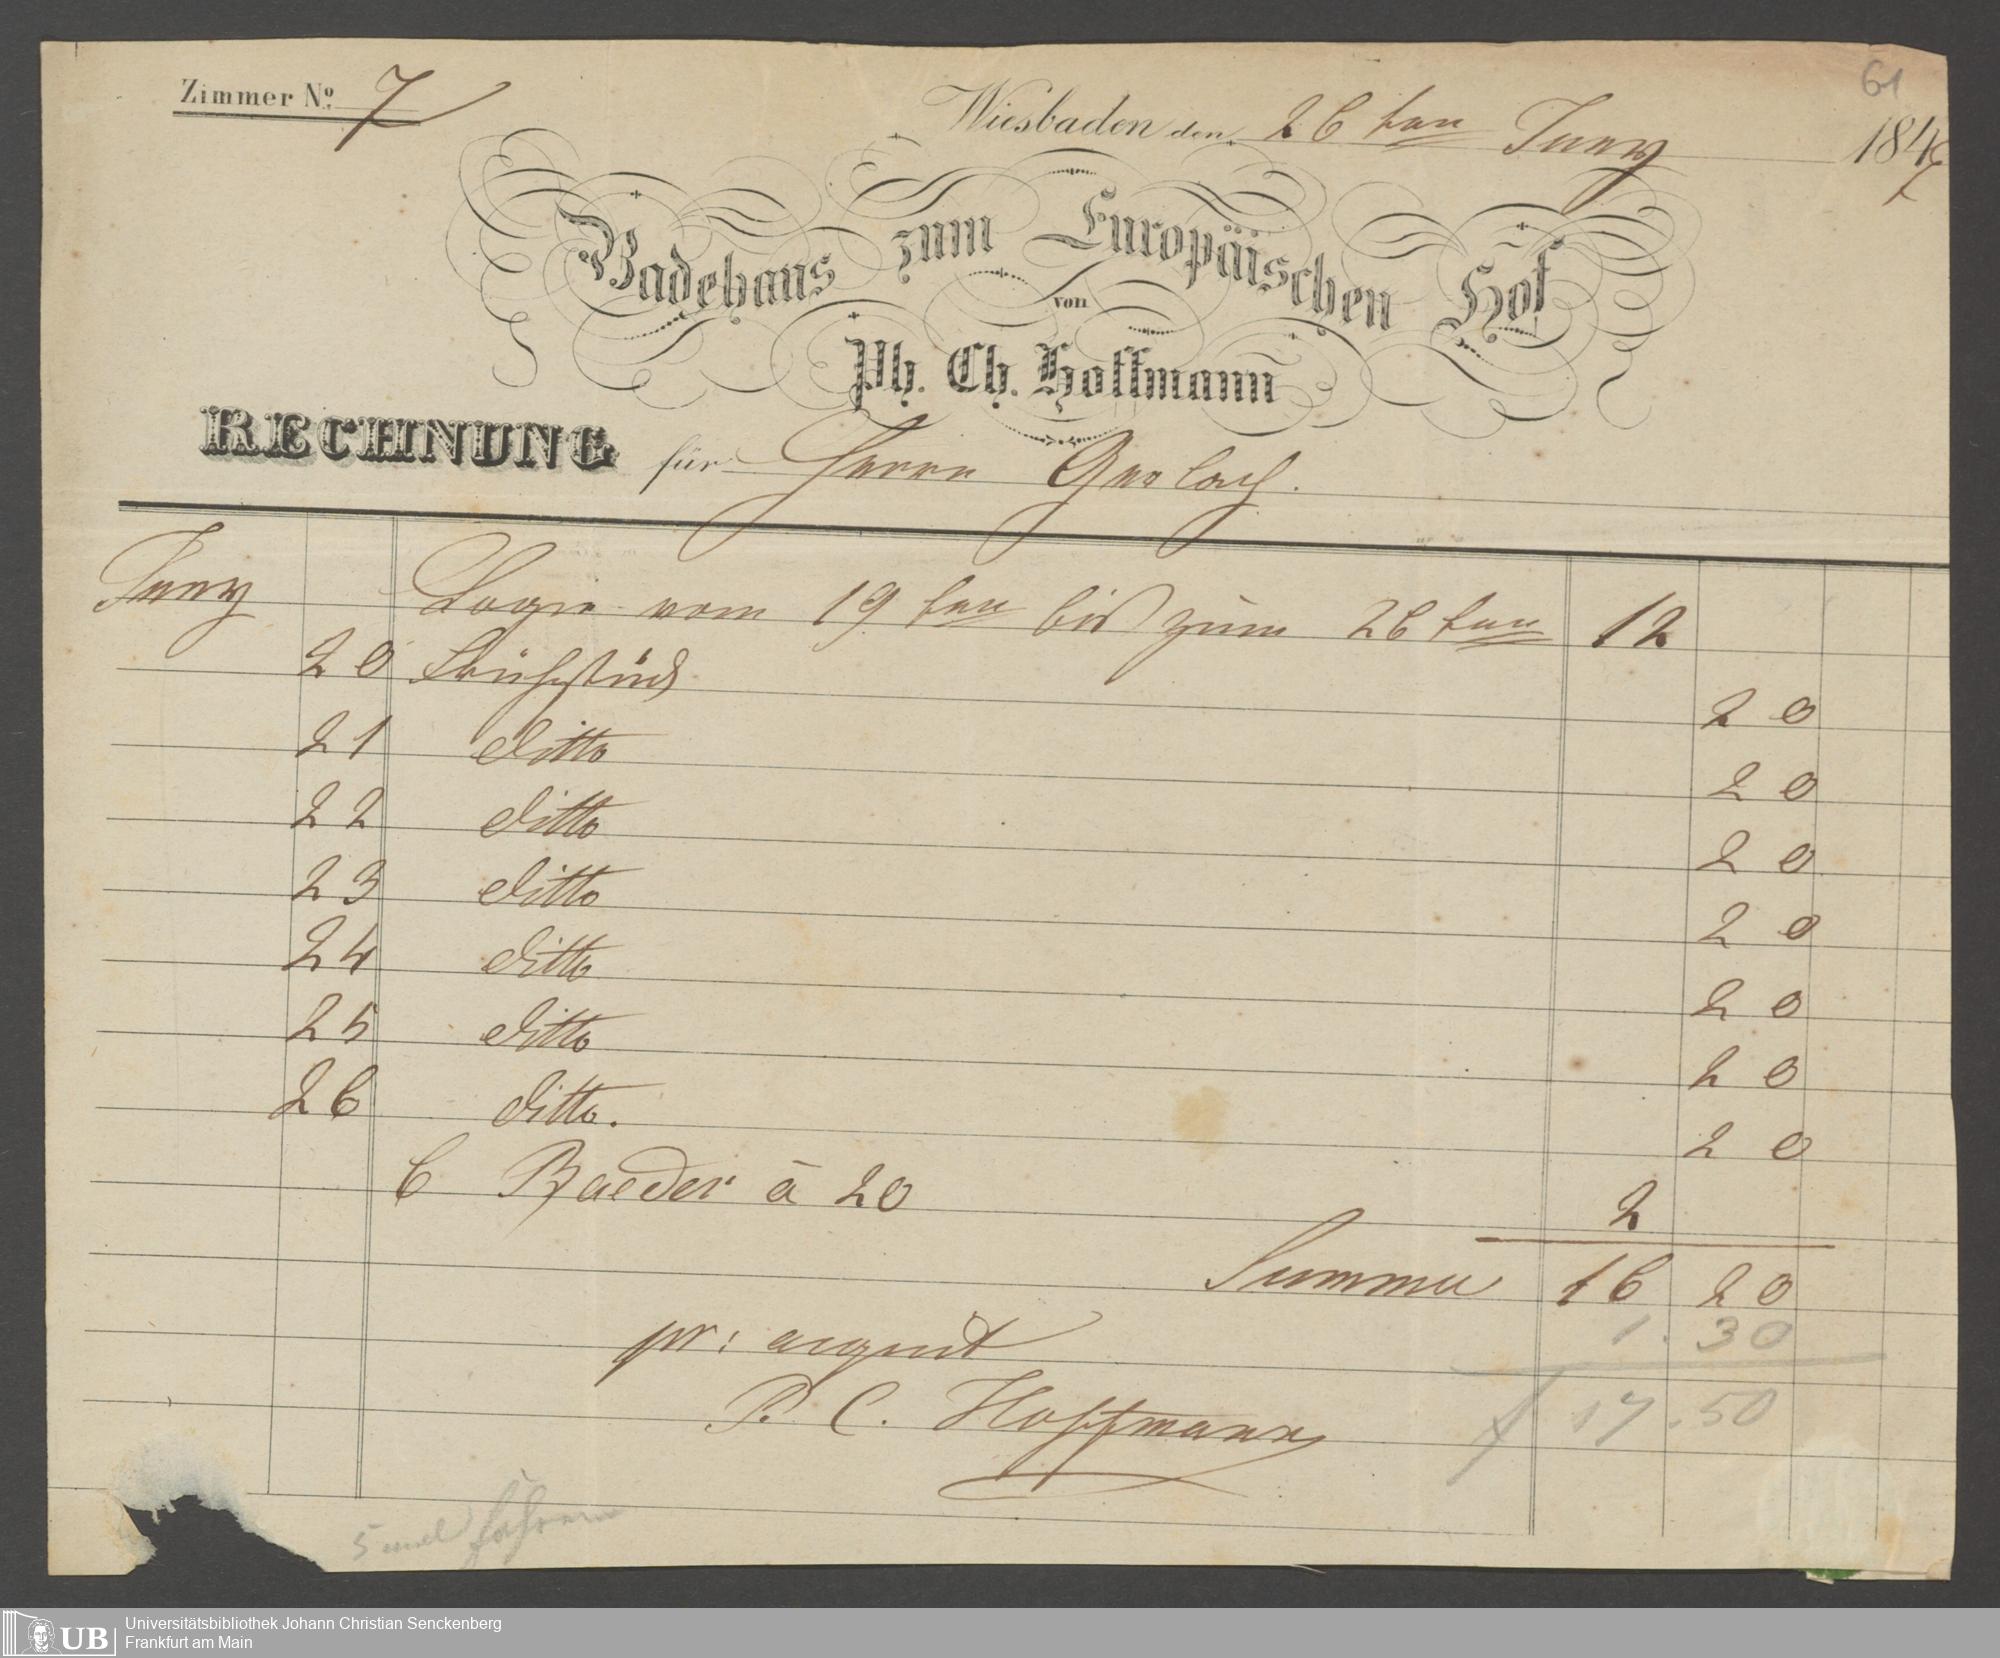 61
Zimmer No. 7
Wiesbaden den 26ten Juny 1847
Badehaus zum Europäischen Hof
von
Ph. Ch. Hoffmann
RECHNUNG für Herrn Gerlach.
Juny Logie vom 19ten bis zum 26ten 12
20 Frühstück 20
21 ditto 20
22 ditto 20
23 ditto 20
24 ditto 20
25 ditto 20
26 ditto. 20
6 Baeder à 20 2
Summa 16 20
1.30
pr: acquit
17.50
P. C. Hoffmann
5 mal
Universitätsbibliothek Johann Christian Senckenberg
Frankfurt am Main
UB